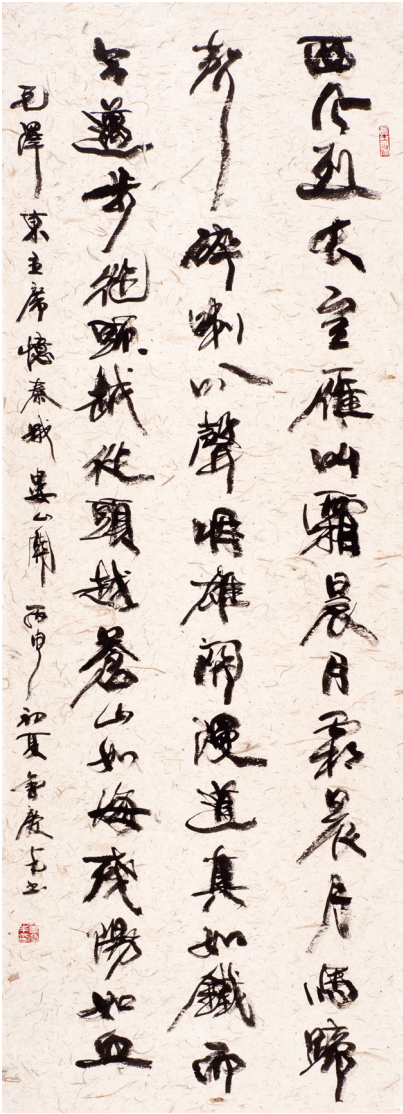 西风烈長空雁叫霜晨月霜晨月馬蹄
聲碎喇叭聲咽雄關漫道真如鐵而
今邁步從頭越從頭越蒼山如海殘陽如血
毛澤東主席憶秦娥婁山關丙申初夏